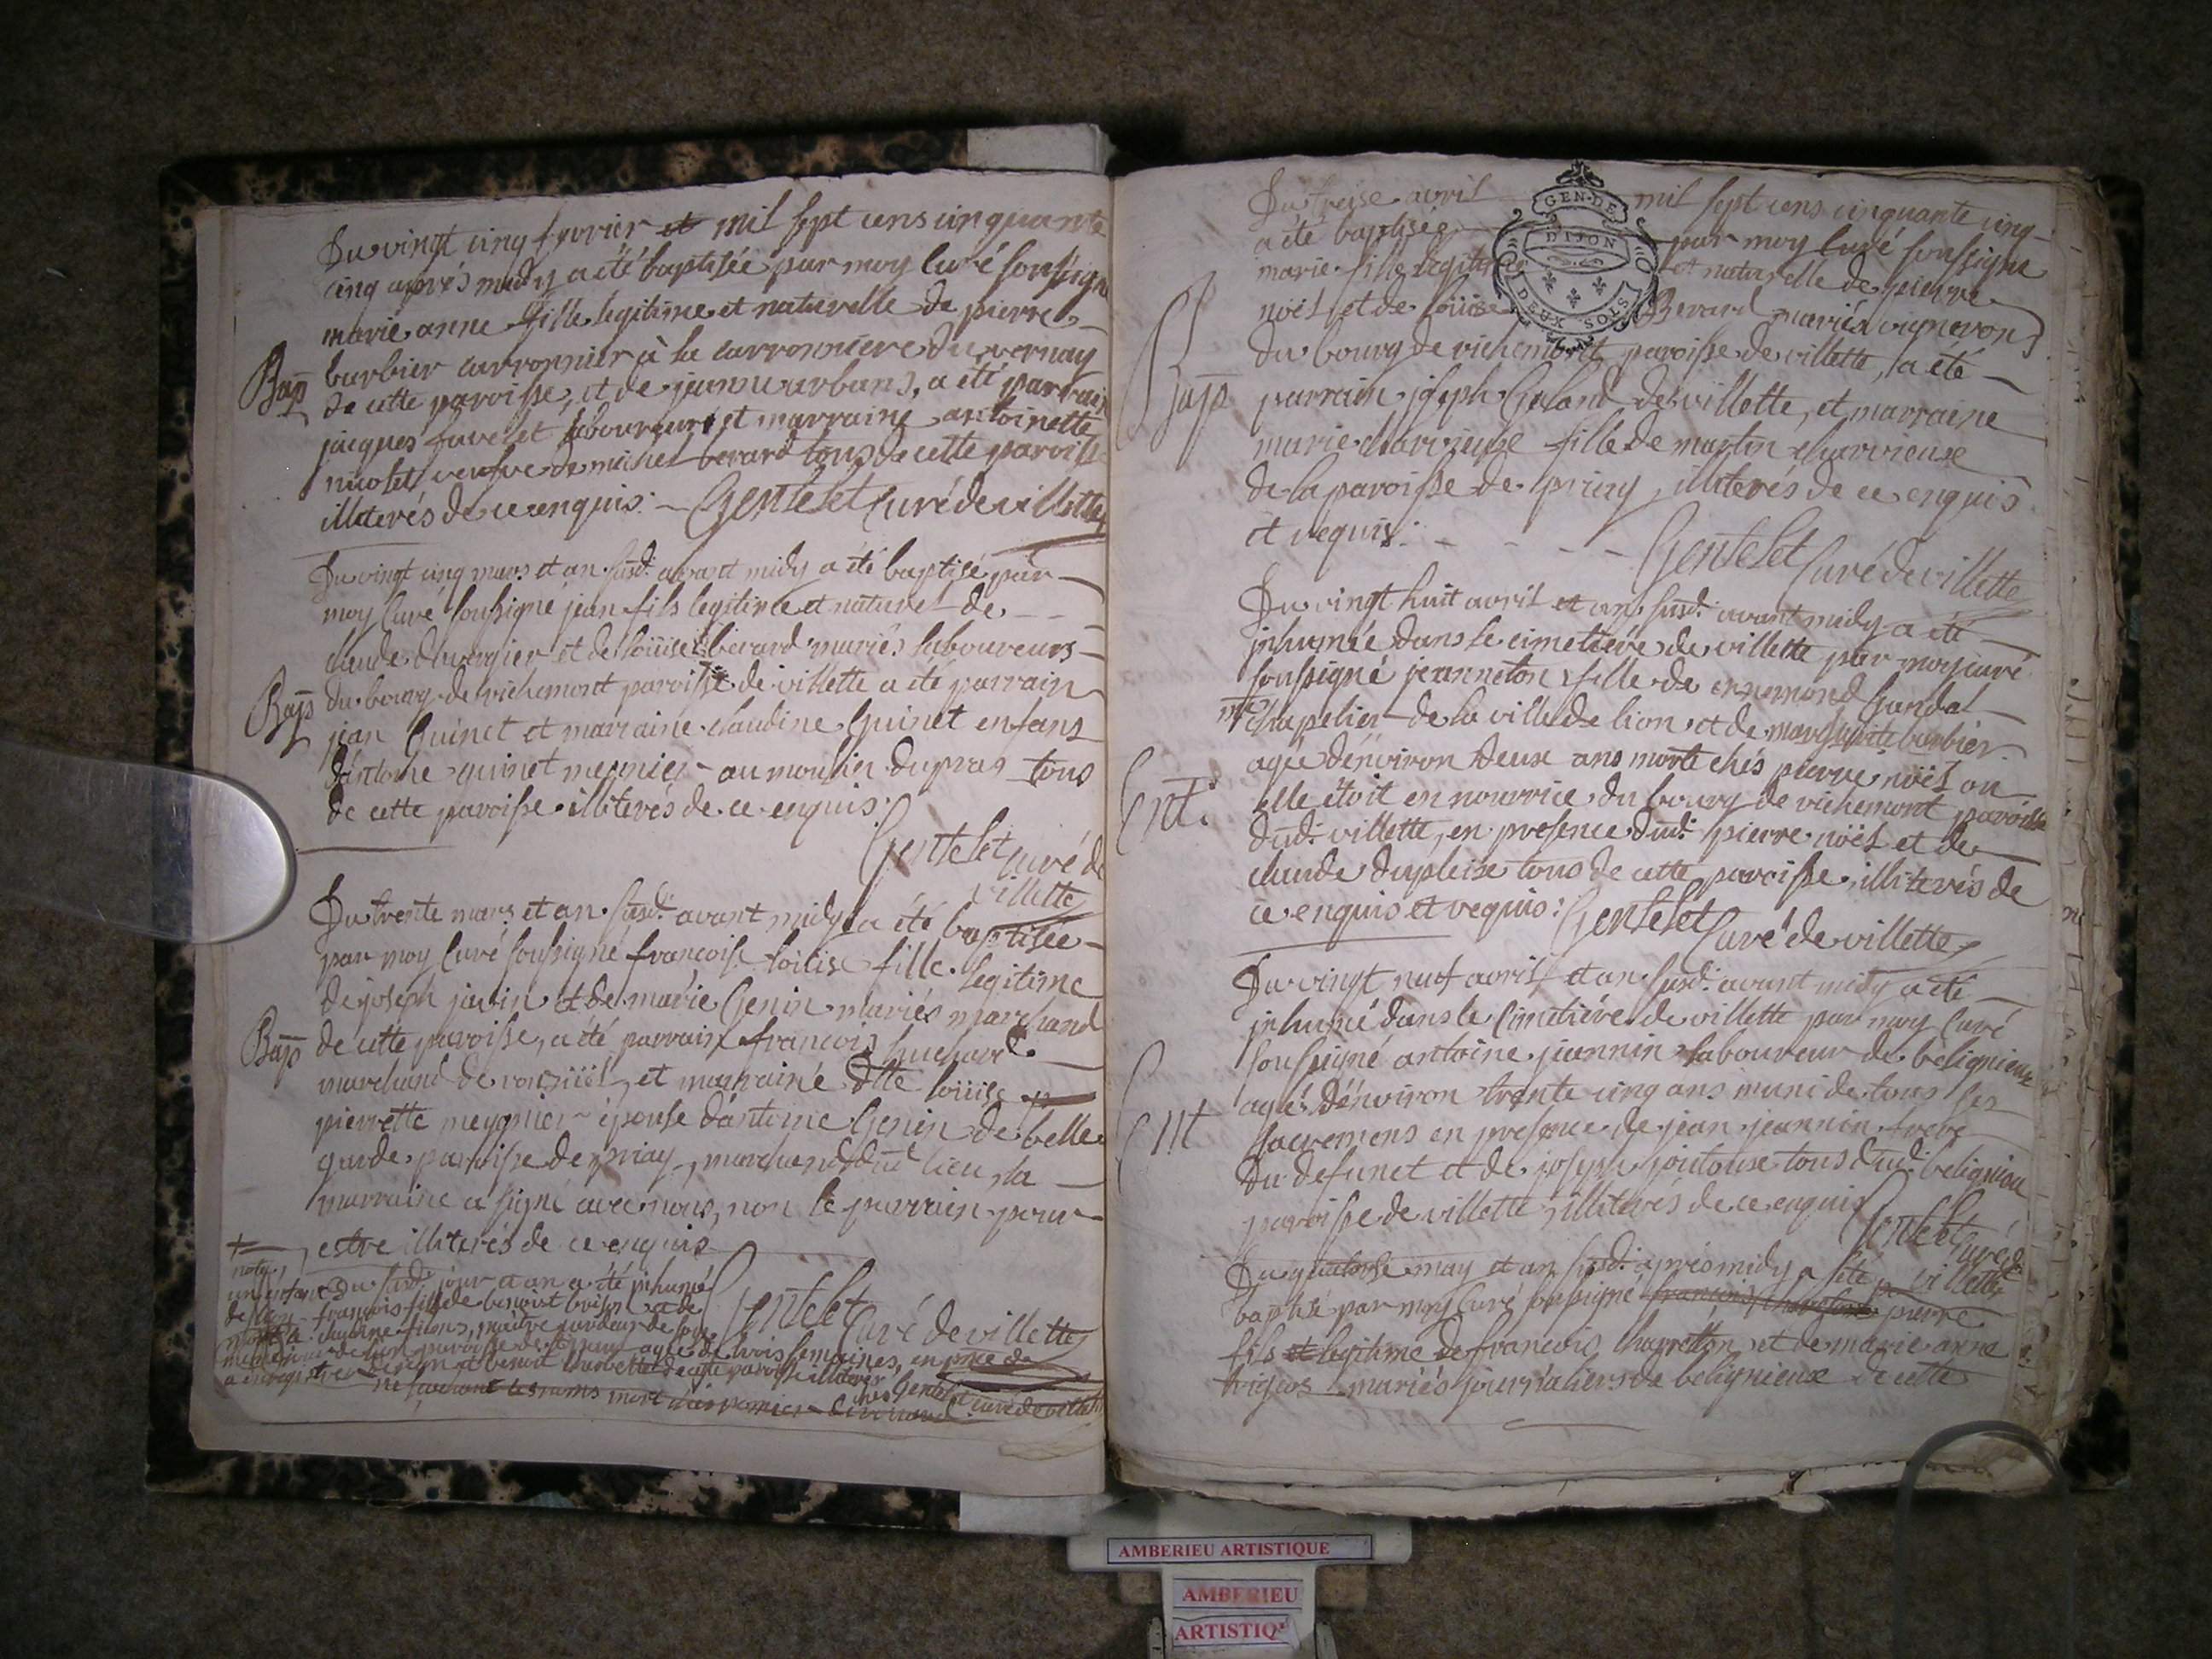 Du vingt cinq fevrier et mil sept cens cinquante
cinq aprés midy a été baptisée par moy Curé soussigné
marie anne fille legitime et naturelle de pierre
barbier carronnier à la carronniere du vernay
Bap de cette paroisse, et de jeanne urbans, a été parrain
jacques favelet laboureur et marraine antoinette
nicolet veufve de michel berard tous de cette paroisse
illiterés de ce enquis. Gentelet Curé de villette
Du vingt cinq mars et an susd. avant midy a été baptisé par
moy Curé soussigné jean fils legitime et naturel de
claude duvergier et de loüise berard mariés laboureurs
Bap du bourg de richemont paroisse de villette a été parrain
jean Guinet et marraine claudine Guinet enfans
d'antoine guinet meunier au moulin du pras tous
de cette paroisse illiterés de ce enquis.
Gentelet Curé de
villette
Du trente mars et an susd. avant midy a été baptisée
par moy Curé soussigné françoise loüise fille legitime
de joseph javin et de marie Genin mariés marchand
Bap de cette paroisse, a été parrain françois
marchand de et marraine dlle loüise
pierrette meynier épouse d'antoine Genin de belle
garde paroisse de priay, marchand dud. lieu, la
marraine a signé avec nous, non le parrain pour
estre illiterés de ce enquis
nota
un enfant Du susd. jour et an a été inhumé
de lion françois fils de benoist et de
claudine maitre
paroisse de agé de trois semaines, en pnce de
et benoit de cette paroisse illiterés
Gentelet Curé de villette
ne sachant les noms mort chés Gentelet curé de villette
GEN. DE
DIJON
DEUX SOLS
Du treise avril mil sept cens cinquante cinq
a été baptisée par moy Curé soussigné
marie fille legitime et naturelle de pierre
noël et de loüise Berard mariés vigneron
du bourg de richemont paroisse de villette, a été
Bap parrain joseph Galand de villette, et marraine
marie charvieuse fille de martin charvieuse
de la paroisse de priay, illiterés de ce enquis
et requis. Gentelet Curé de villette
Du vingt huit avril et an susd. avant midy a été
inhumée dans le cimetiére de villette par moy curé
soussigné jeanneton fille de ennemond Gandal
mtre chapelier de la ville de lion et de marguerite barbier
agée d'environ deux ans morte chés pierre noël ou
Ent. elle étoit en nourrice du bourg de richemont paroisse
dud. villette, en presence dud. pierre noël et de
claude dupleise tous de cette paroisse, illiterés de
ce enquis et requis: Gentelet Curé de villette
Du vingt neuf avril et an susd. avant midy a été
inhumé dans le Cimetiére de villette par moy Curé
soussigné antoine jeannin laboureur de belignieux
agé d'environ trente cinq ans muni de tous ses
Ent sacremens en presence de jean jeannin frere
du defunct et de joseph tous dud. belignieu
paroisse de villette, illiterés de ce enquis
Gentelet Curé de
villette
Du quatorse may et an susd. aprés midy a été
baptisé par moy Curé soussigné pierre
fils et legitime de françois charetton et de marie anne
mariés journaliers de belignieux de cette
AMBERIEU ARTISTIQUE
AMBERIEU
ARTISTIQ